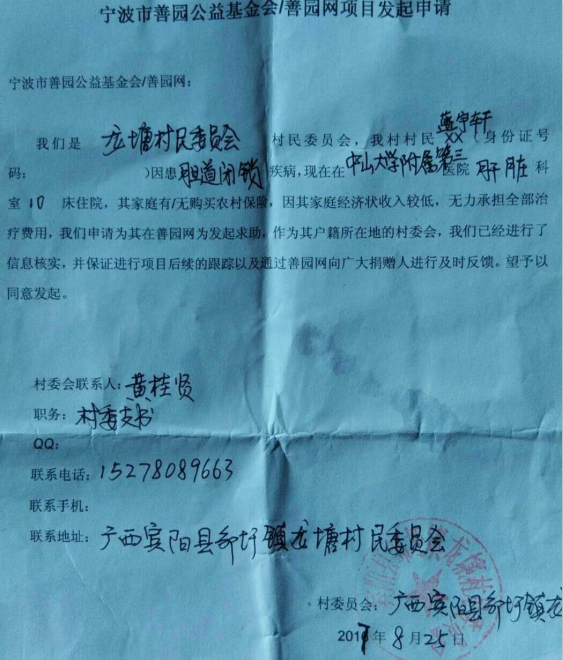 宁波市善园公益基金会/善园网项目发起申请
宁波市善园公益基金会/善园网：
我们是 龙塘村民委员会 村民委员会，我村村民 XX（身份证号
码： ）因患 胆道闭锁 疾病，现在在 中山大学附属第三 医院 肝脏 科
室 10 床住院，其家庭有/无购买农村保险，因其家庭经济状收入较低，无力承担全部治
疗费用，我们申请为其在善园网为发起求助，作为其户籍所在地的村委会，我们已经进行了
信息核实，并保证进行项目后续的跟踪以及通过善园网向广大捐赠人进行及时反馈。望予以
同意发起。
村委会联系人：黄桂贤
职务：村委支书
QQ：
联系电话：15278089663
联系手机：
联系地址：广西宾阳县邹圩镇龙塘村民委员会
村委员会：广西宾阳县邹圩镇龙
2017年 8月25日